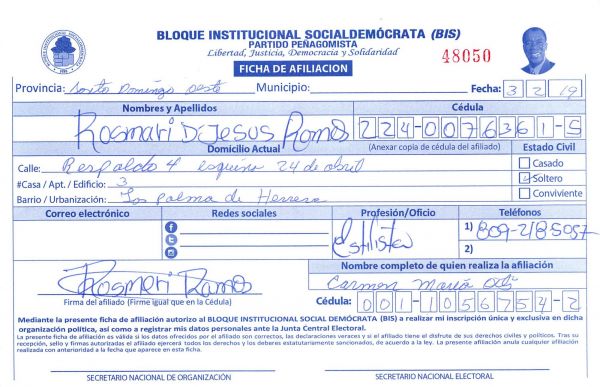 BLOQUE INSTITUCIONAL SOCIALDEMÓCRATA (BIS)
PARTIDO PEÑAGOMISTA
Libertad, Justicia, Democracia y Solidaridad
48050
FICHA DE AFILIACION
Provincia: Santo Domingo Oeste Municipio: Fecha: 3 2 19
Nombres y Apellidos Cédula
Rosmari De Jesus Ramos 224-0076361-5
Domicilio Actual (Anexar copia de cédula del afiliado) Estado Civil
Calle: Respaldo 4 esquina 24 de abril Casado
#Casa / Apt. / Edificio: 3 Soltero
Barrio / Urbanización: Las palma de Herrera Conviviente
Correo electrónico Redes sociales Profesión/Oficio Teléfonos
Estilista 1) 809-218-5057
2)
Rosmeri Ramos Nombre completo de quien realiza la afiliación
Carmen María
Firma del afiliado (Firme igual que en la Cédula) Cédula: 001-1056754-2
Mediante la presente ficha de afiliación autorizo al BLOQUE INSTITUCIONAL SOCIAL DEMÓCRATA (BIS) a realizar mi inscripción única y exclusiva en dicha
organización política, así como a registrar mis datos personales ante la Junta Central Electoral.
La presente ficha de afiliación es válida si los datos ofrecidos por el afiliado son correctos, las declaraciones veraces y si el afiliado tiene el disfrute de sus derechos civiles y políticos. Tras su
recepción, sello y firmas autorizadas el afiliado ejercerá todos los derechos y los deberes estatutariamente sancionados, de acuerdo a la ley. La presente afiliación anula cualquier afiliación
realizada con anterioridad a la fecha que aparece en esta ficha.
SECRETARIO NACIONAL DE ORGANIZACIÓN SECRETARIO NACIONAL ELECTORAL